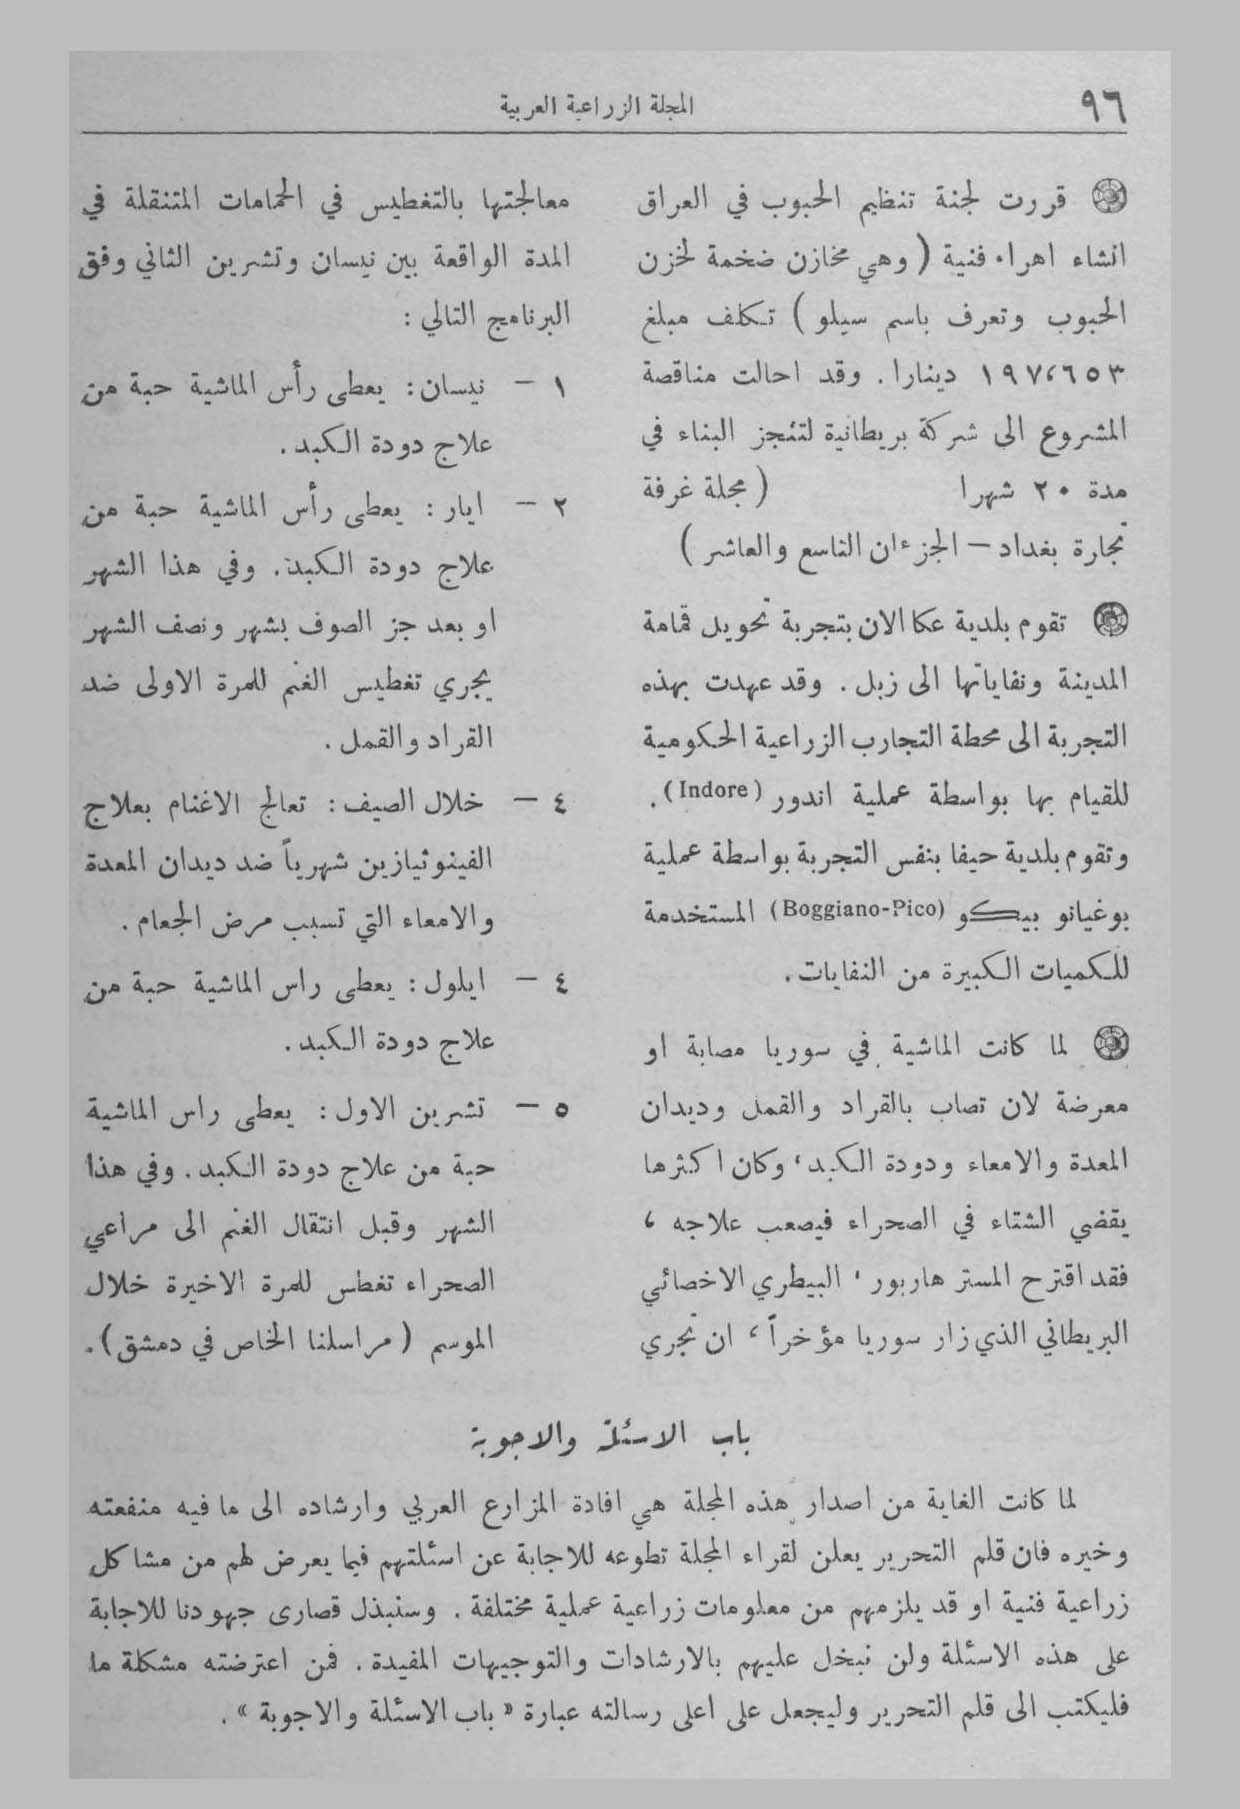 ٩٦
المجلة الزراعية العربية
قررت لجنة تنظيم الحبوب في العراق
انشاء اهراء فنية ( وهي مخازن ضخمة لخزن
الحبوب وتعرف باسم سيلو ) تكلف مبلغ
١٩٧،٦٥٣ دينارا. وقد احالت مناقصة
المشروع الى شركة بريطانية لتنجز البناء في
مدة ٢٠ شهرا ( مجلة غرفة
تجارة بغداد – الجزءان التاسع والعاشر )
تقوم بلدية عكا الان بتجربة تحويل قمامة
المدينة ونفاياتها الى زبل. وقد عهدت بهذه
التجربة الى محطة التجارب الزراعية الحكومية
للقيام بها بواسطة عملية اندور (Indore).
وتقوم بلدية حيفا بنفس التجربة بواسطة عملية
بوغيانو بيكو (Boggiano-Pico) المستخدمة
للكميات الكبيرة من النفايات.
لما كانت الماشية في سوريا مصابة او
معرضة لان تصاب بالقراد والقمل وديدان
المعدة والامعاء ودودة الكبد، وكان اكثرها
يقضي الشتاء في الصحراء فيصعب علاجه ،
فقد اقترح المستر هاربور ، البيطري الاخصائي
البريطاني الذي زار سوريا مؤخراً ، ان تجري
معالجتها بالتغطيس في الحمامات المتنقلة في
المدة الواقعة بين نيسان وتشرين الثاني وفق
البرنامج التالي :
١ – نيسان: يعطى رأس الماشية حبة من
علاج دودة الكبد.
٢ – ايار : يعطى رأس الماشية حبة من
علاج دودة الكبد. وفي هذا الشهر
او بعد جز الصوف بشهر ونصف الشهر
يجري تغطيس الغنم للمرة الاولى ضد
القراد والقمل.
٤ – خلال الصيف : تعالج الاغنام بعلاج
الفينوثيازين شهرياً ضد ديدان المعدة
والامعاء التي تسبب مرض الجعام.
٤ – ايلول : يعطى راس الماشية حبة من
علاج دودة الكبد.
٥ – تشرين الاول : يعطى راس الماشية
حبة من علاج دودة الكبد. وفي هذا
الشهر وقبل انتقال الغنم الى مراعي
الصحراء تغطس للمرة الاخيرة خلال
الموسم ( مراسلنا الخاص في دمشق ).
باب الاسئلة والاجوبة
لما كانت الغاية من اصدار هذه المجلة هي افادة المزارع العربي وارشاده الى ما فيه منفعته
وخيره فان قلم التحرير يعلن لقراء المجلة تطوعه للاجابة عن اسئلتهم فيما يعرض لهم من مشاكل
زراعية فنية او قد يلزمهم من معلومات زراعية عملية مختلفة. وسنبذل قصارى جهودنا للاجابة
على هذه الاسئلة ولن نبخل عليهم بالارشادات والتوجيهات المفيدة. فمن اعترضته مشكلة ما
فليكتب الى قلم التحرير وليجعل على اعلى رسالته عبارة « باب الاسئلة والاجوبة ».